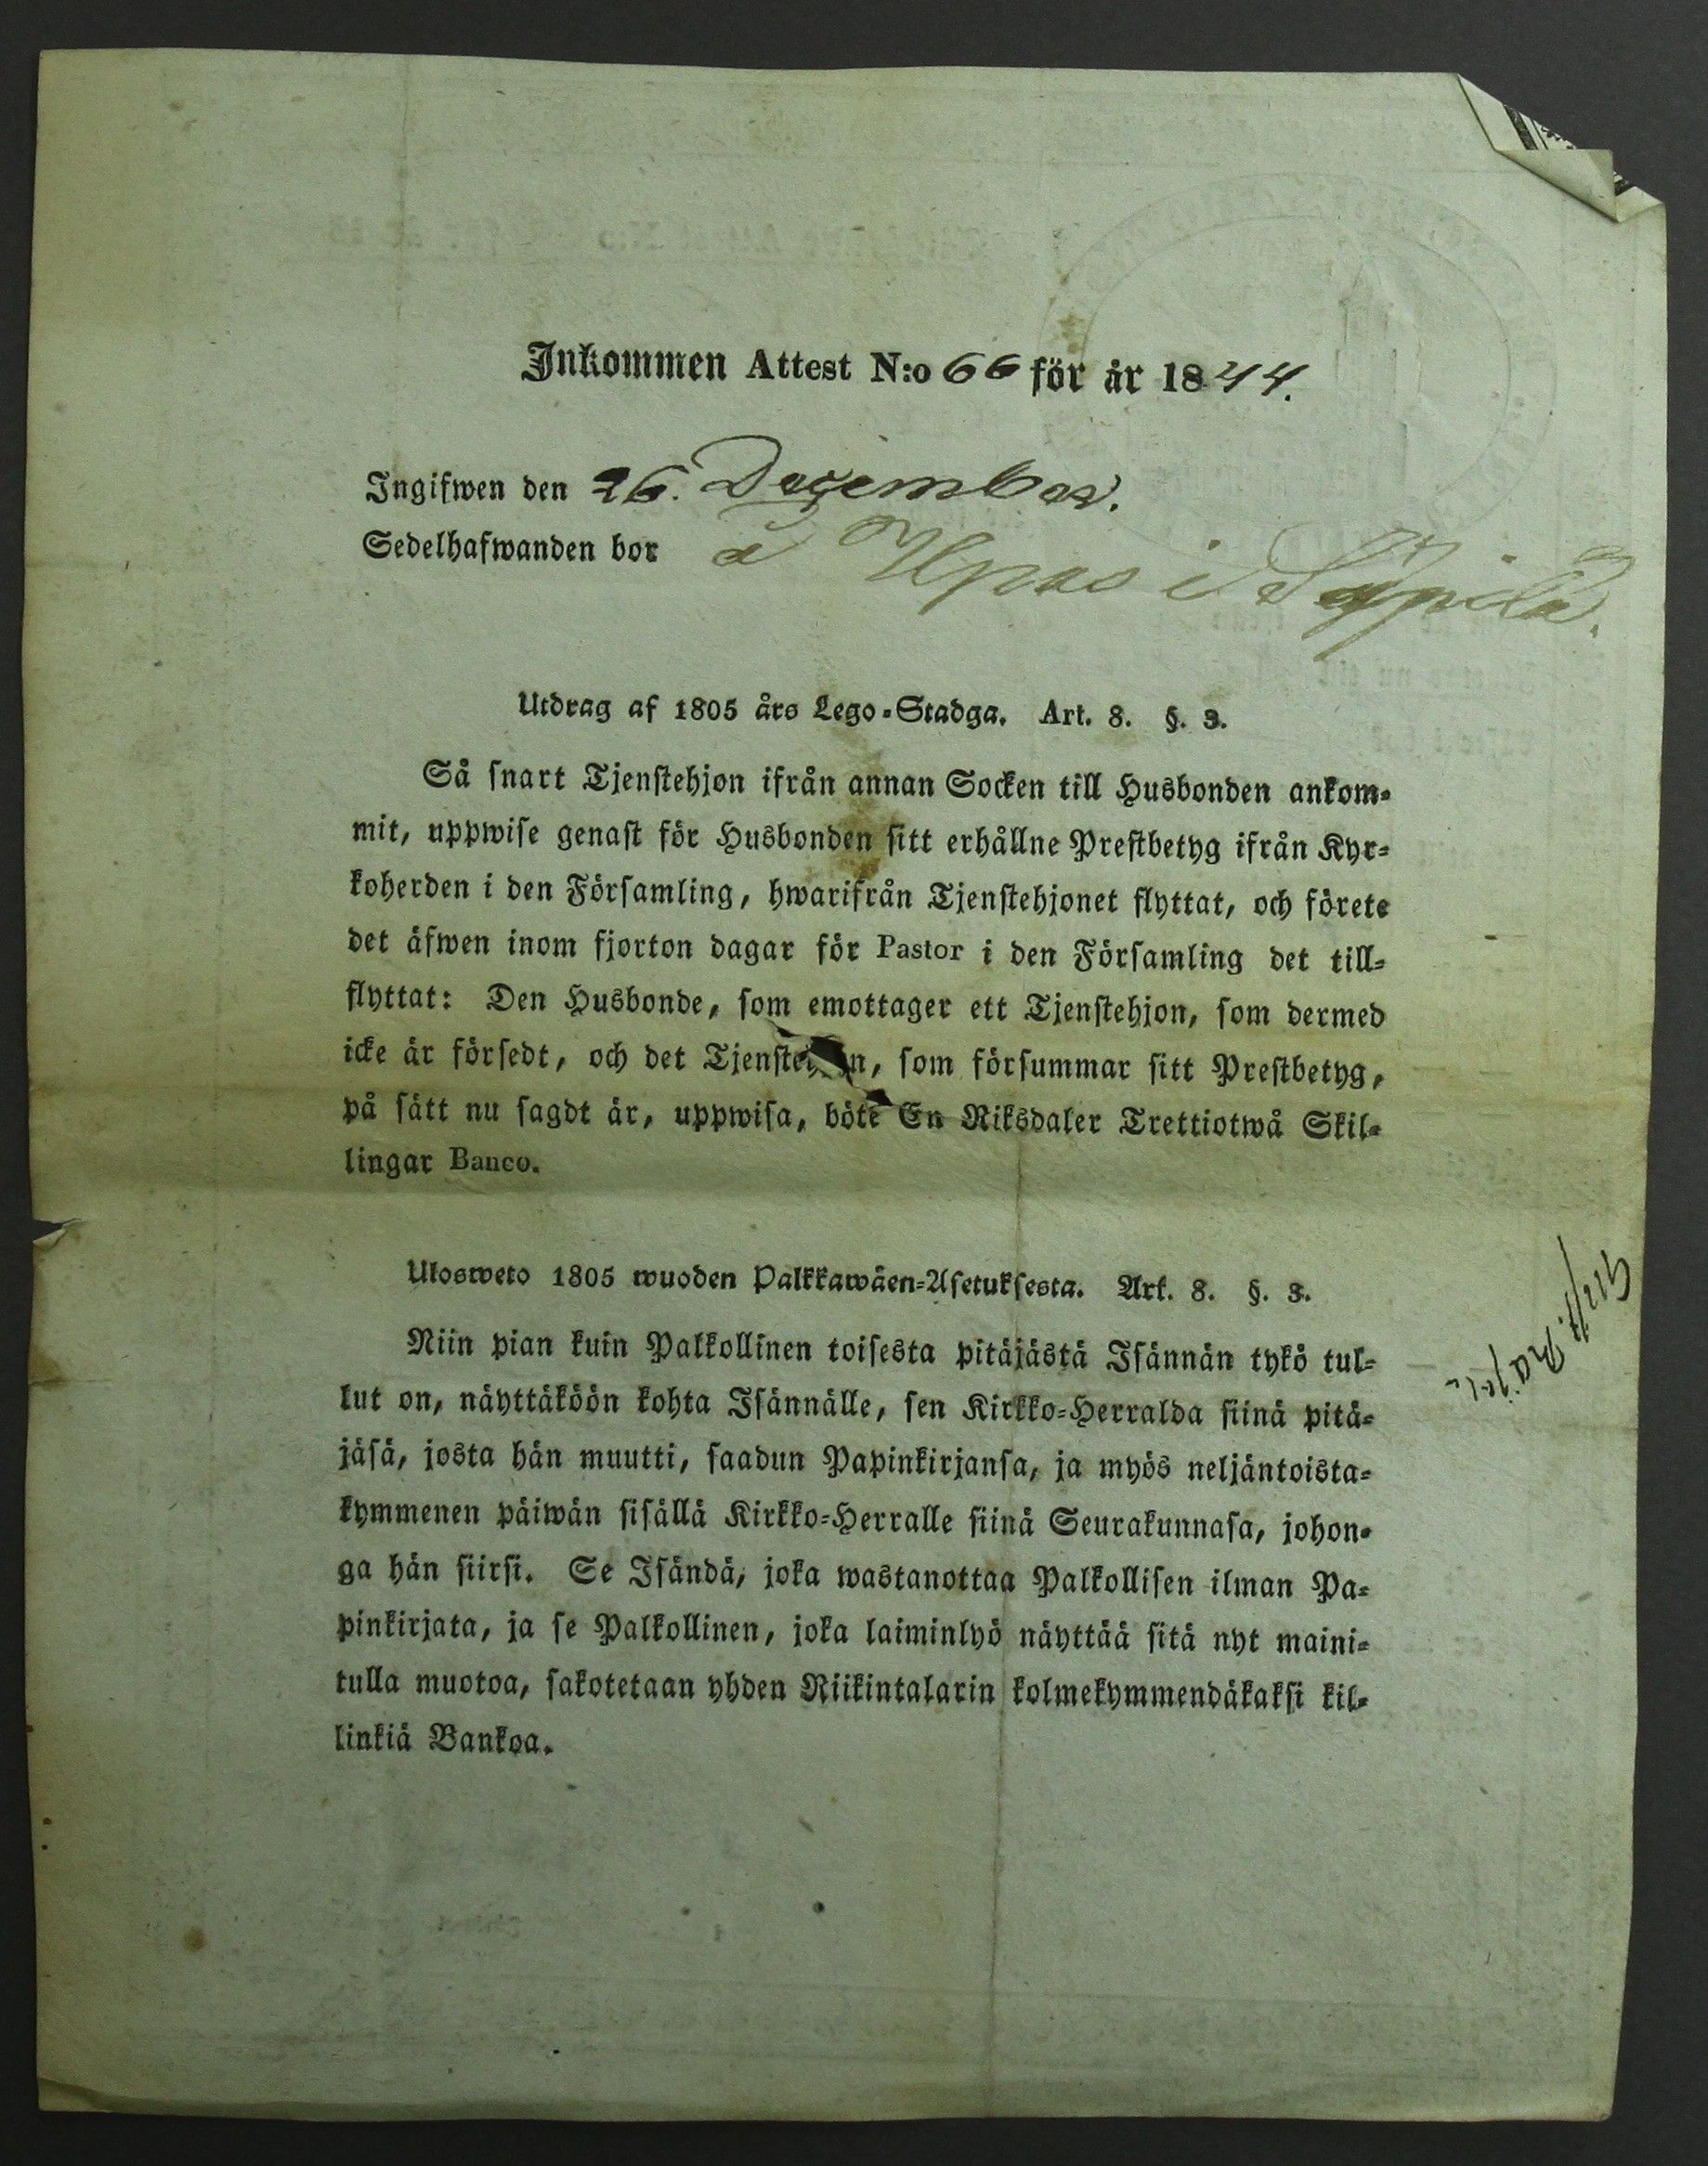 Inkommen Attest N:o 66 för år 1844.
Ingifwen den 26. December.
Sedelhafwanden bor å Upas i
Utdrag af 1805 års Lego-Stadga. Art. 8. §. 3.
Så snart Tjenstehjon ifrån annan Socken till Husbonden ankom-
mit, uppwise genast för Husbonden sitt erhållne Prestbetyg ifrån Kyr-
koherden i den Församling, hwarifrån Tjenstehjonet flyttat, och förete
det äfwen inom fjorton dagar för Pastor i den Församling det till-
flyttat: Den Husbonde, som emottager ett Tjenstehjon, som dermed
icke är försedt, och det Tjenstehjon, som försummar sitt Prestbetyg,
på sätt nu sagdt är, uppwisa, böte En Riksdaler Trettiotwå Skil-
lingar Banco.
Ulosweto 1805 wuoden Palkkawäen-Asetuksesta. Art. 8. §. 3.
Niin pian kuin Palkollinen toisesta pitäjästä Isännän tykö tul-
lut on, näyttäköön kohta Isännälle, sen Kirkko-Herralda siinä pitä-
jäsä, josta hän muutti, saadun Papinkirjansa, ja myös neljäntoista-
kymmenen päiwän sisällä Kirkko-Herralle siinä Seurakunnasa, johon-
ga hän siirsi. Se Isändä, joka wastanottaa Palkollisen ilman Pa-
pinkirjata, ja se Palkollinen, joka laiminlyö näyttää sitä nyt maini-
tulla muotoa, sakotetaan yhden Riikintalarin kolmekymmendäkaksi kil-
linkiä Bankoa.